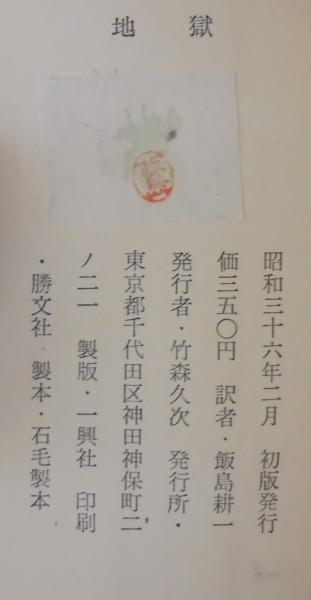 地獄
昭和三十六年二月　初版発行
価三五〇円　訳者・飯島耕一
発行者・竹森久次　発行所・
東京都千代田区神田神保町二
ノ二一　製版・一興社　印刷
・勝文社　製本・石毛製本